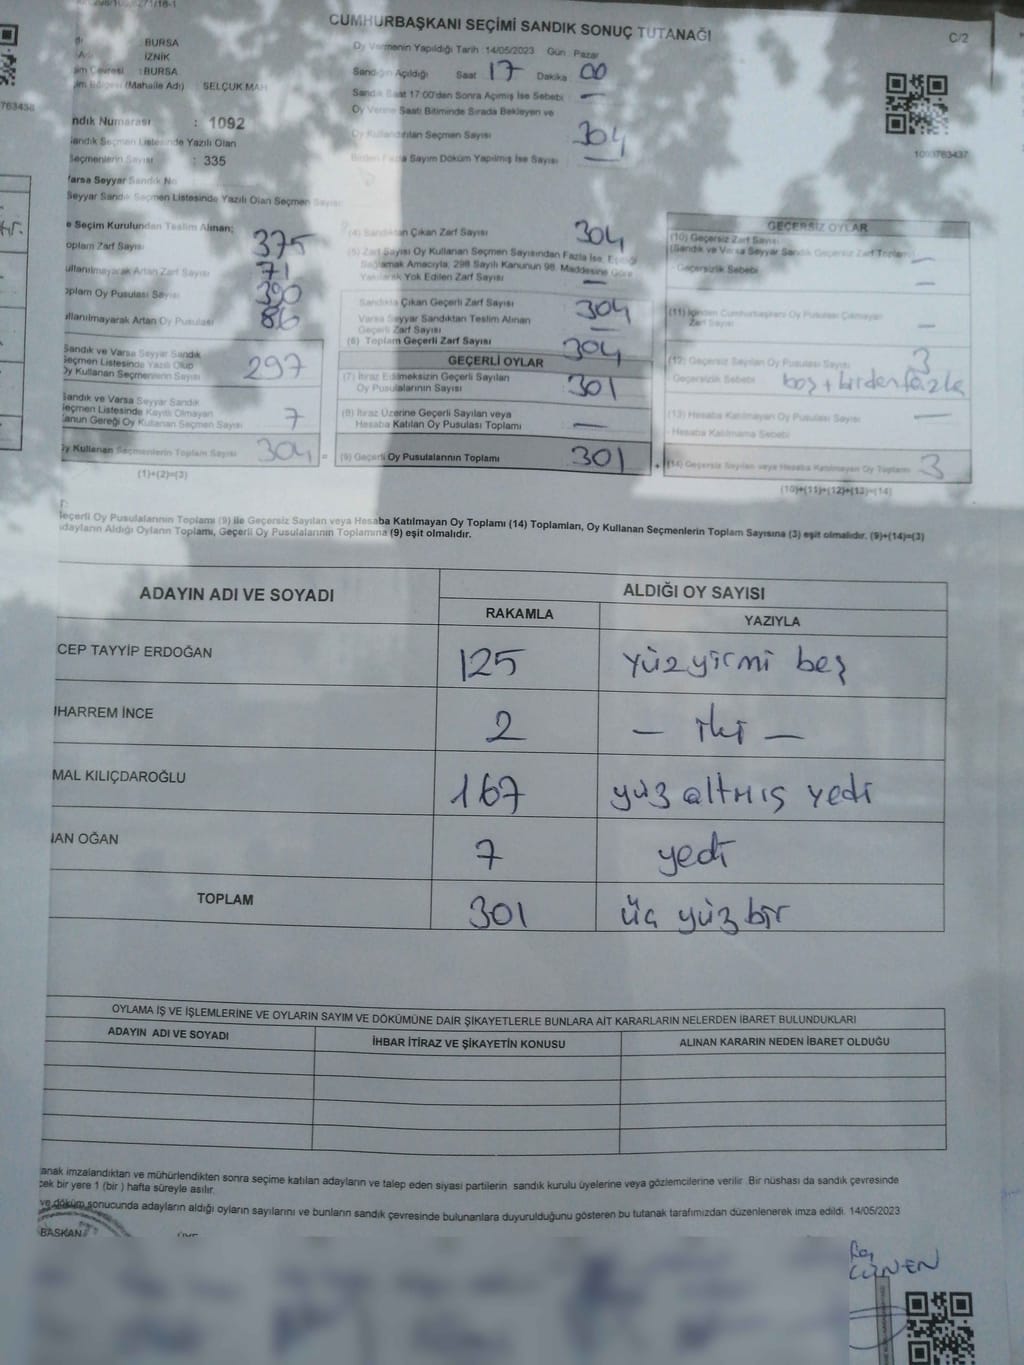 CUMHURBAŞKANI SEÇİMİ SANDIK SONUÇ TUTANAĞI
C/2
BURSA
İZNİK
BURSA
(Mahalle Adı) : SELÇUK MAH
ndık Numarası : 1092
andık Seçmen Listesinde Yazılı Olan
Seçmenlerin Sayısı : 335
Varsa Seyyar Sandık No
Seyyar Sandık Seçmen Listesinde Yazılı Olan Seçmen Sayısı
Oy Vermenin Yapıldığı Tarih :14/05/2023 Gün : Pazar
Sandığın Açıldığı Saat 17 Dakika : 00
Sandık Saat 17:00'den Sonra Açımış İse Sebebi : —
Oy Verme Saati Bitiminde Sırada Bekleyen ve
Oy Kullandırılan Seçmen Sayısı 304
Birden Fazla Sayım Döküm Yapılmış İse Sayısı —
1093763437
763438
e Seçim Kurulundan Teslim Alınan;
oplam Zarf Sayısı 375
ullanılmayarak Artan Zarf Sayısı 71
oplam Oy Pusulası Sayısı 390
ullanılmayarak Artan Oy Pusulası 86
Sandık ve Varsa Seyyar Sandık
Seçmen Listesinde Yazılı Olup
Oy Kullanan Seçmenlerin Sayısı 297
Sandık ve Varsa Seyyar Sandık
Seçmen Listesinde Kayıtlı Olmayan
Kanun Gereği Oy Kullanan Seçmen Sayısı 7
Oy Kullanan Seçmenlerin Toplam Sayısı 304 =
(1)+(2)=(3)
(4) Sandıktan Çıkan Zarf Sayısı 304
(5) Zarf Sayısı Oy Kullanan Seçmen Sayısından Fazla İse, Eşitliği
Sağlamak Amacıyla, 298 Sayılı Kanunun 98. Maddesine Göre
Yakılarak Yok Edilen Zarf Sayısı —
Sandıkta Çıkan Geçerli Zarf Sayısı 304
Varsa Seyyar Sandıktan Teslim Alınan
Geçerli Zarf Sayısı —
(6) Toplam Geçerli Zarf Sayısı 304
GEÇERLİ OYLAR
(7) İtiraz Edilmeksizin Geçerli Sayılan
Oy Pusulalarının Sayısı 301
(8) İtiraz Üzerine Geçerli Sayılan veya
Hesaba Katılan Oy Pusulası Toplamı —
(9) Geçerli Oy Pusulalarının Toplamı 301 +
GEÇERSİZ OYLAR
(10) Geçersiz Zarf Sayısı
(Sandık ve Varsa Seyyar Sandık Geçersiz Zarf Toplamı) —
- Geçersizlik Sebebi —
(11) İçinden Cumhurbaşkanı Oy Pusulası Çıkmayan
Zarf Sayısı —
(12) Geçersiz Sayılan Oy Pusulası Sayısı 3
Geçersizlik Sebebi boş + birden fazla
(13) Hesaba Katılmayan Oy Pusulası Sayısı —
- Hesaba Katılmama Sebebi
(14) Geçersiz Sayılan veya Hesaba Katılmayan Oy Toplamı 3
(10)+(11)+(12)+(13)=(14)
eçerli Oy Pusulalarının Toplamı (9) ile Geçersiz Sayılan veya Hesaba Katılmayan Oy Toplamı (14) Toplamları, Oy Kullanan Seçmenlerin Toplam Sayısına (3) eşit olmalıdır. (9)+(14)=(3)
dayların Aldığı Oyların Toplamı, Geçerli Oy Pusulalarının Toplamına (9) eşit olmalıdır.
ADAYIN ADI VE SOYADI ALDIĞI OY SAYISI
RAKAMLA YAZIYLA
CEP TAYYİP ERDOĞAN 125 yüzyirmi beş
UHARREM İNCE 2 — iki —
MAL KILIÇDAROĞLU 167 yüz altmış yedi
NAN OĞAN 7 yedi
TOPLAM 301 üç yüz bir
OYLAMA İŞ VE İŞLEMLERİNE VE OYLARIN SAYIM VE DÖKÜMÜNE DAİR ŞİKAYETLERLE BUNLARA AİT KARARLARIN NELERDEN İBARET BULUNDUKLARI
ADAYIN ADI VE SOYADI İHBAR İTİRAZ VE ŞİKAYETİN KONUSU ALINAN KARARIN NEDEN İBARET OLDUĞU
anak imzalandıktan ve mühürlendikten sonra seçime katılan adayların ve talep eden siyasi partilerin sandık kurulu üyelerine veya gözlemcilerine verilir. Bir nüshası da sandık çevresinde
cek bir yere 1 (bir ) hafta süreyle asılır.
ve döküm sonucunda adayların aldığı oyların sayılarını ve bunların sandık çevresinde bulunanlara duyurulduğunu gösteren bu tutanak tarafımızdan düzenlenerek imza edildi. 14/05/2023
BAŞKAN